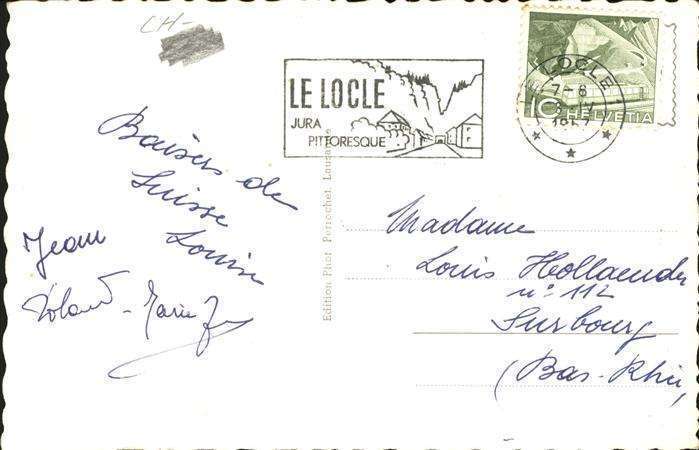 CH-
LE LOCLE
JURA
PITTORESQUE
LOCLE
7-8
IV
10 HELVETIA
Baisers de
Suisse
Louise
Jean
Yoland - Marie
Edition Phot Perrochet, Lausanne
Madame
Louis Hollaender
n° 112
Surbourg
(Bas-Rhin)